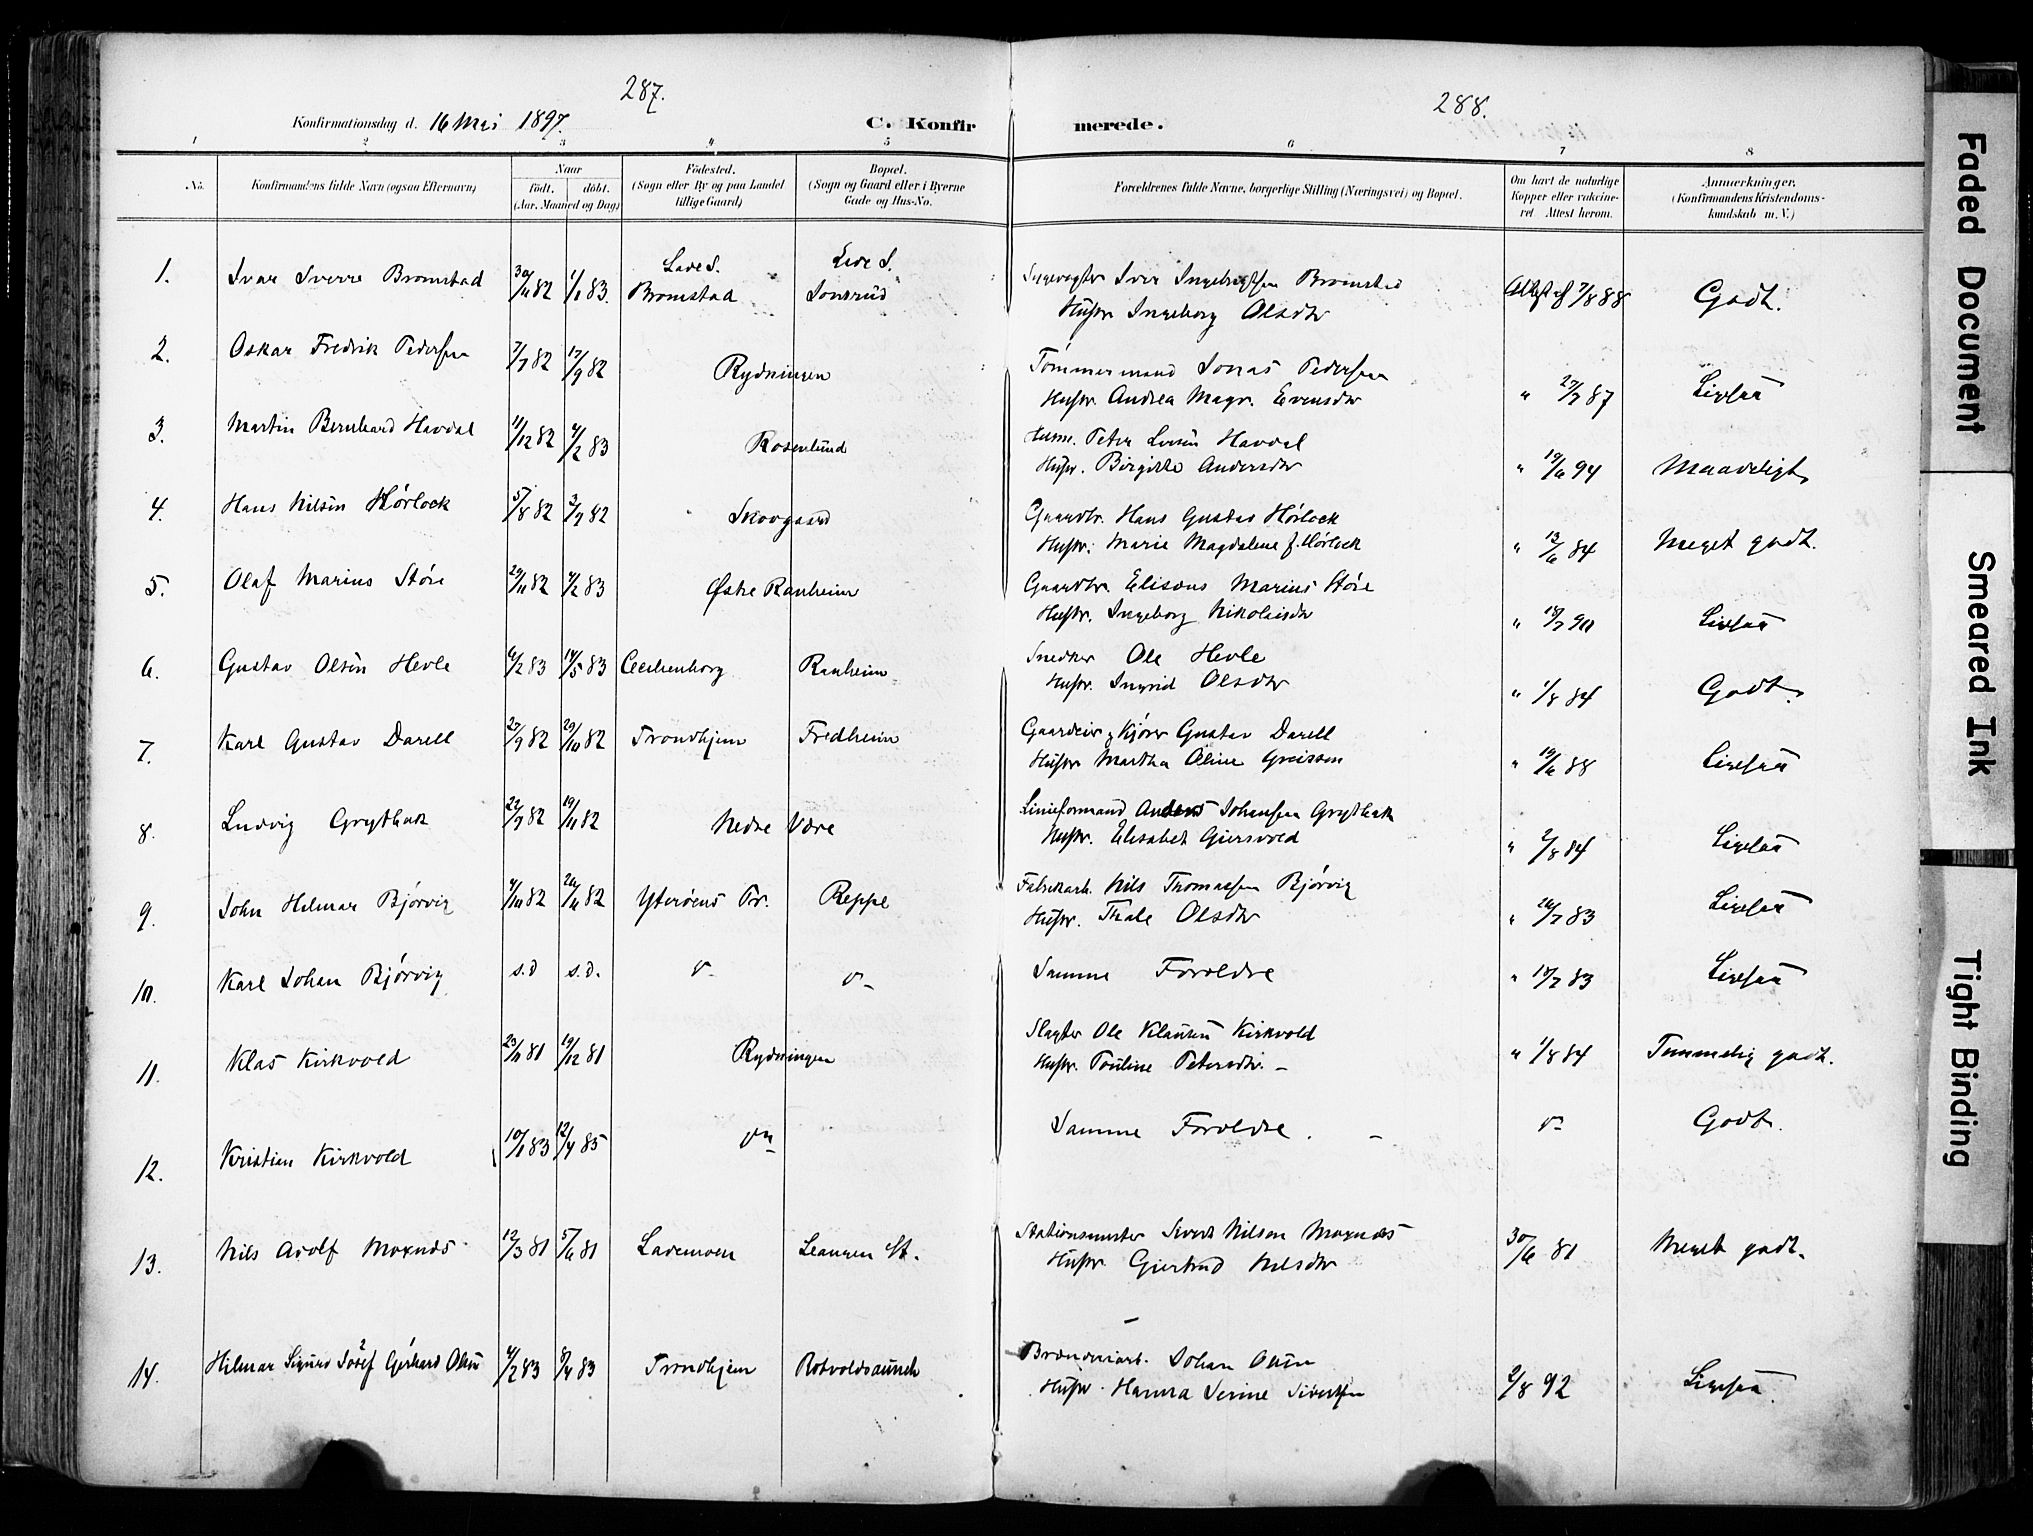 287.
288.
Konfirmationsdag d. 16 Mai 1897.
C. Konfirmerede.
1 2 3 4 5 6 7 8
No.
Konfirmandens fulde Navn (ogsaa Efternavn)
Naar
født. døbt.
(Aar, Maaned og Dag)
Fødested.
(Sogn eller By og paa Landet
tillige Gaard)
Bopæl.
(Sogn og Gaard eller i Byerne
Gade og Hus-No.
Forældrenes fulde Navne, borgerlige Stilling (Næringsvei) og Bopæl.
Om havt de naturlige
Kopper eller vakcine-
ret Attest herom.
Anmærkninger.
(Konfirmandens Kristendoms-
kundskab m. V.)
1. Ivar Sverre Bromstad 30/11 82 1/1 83. Lade S. Bromstad Lade S.
Iver Bromstad Attest af 7/8 88 Godt.
Hustr. Ingeborg Olsdtr
2. Oskar Fredrik Pedersen 7/7 82 17/9 82 Rydningen
Tømmermand Jonas Pedersen
Hustr. Andrea Magr. Evensdtr " 27/7 87 Ligesaa
3. Martin Bernhard Havdal 11/12 82 4/2 83 Rosenlund
Husm. Peter Havdal
Hustr. Birgitte Andersdtr " 19/6 94 Maadeligt
4. Hans Nilsen Hørlock 5/8 82 3/9 82 Skovgaard
Gaardbr. Hans Gustav Hørlock
Hustr. Marie Magdalene f. Hørlock " 13/6 84 Meget godt.
5. Olaf Marius Støre 29/11 82 4/2 83 Østre Ranheim
Gaardbr. Eliseus Marius Støre
Hustr. Ingeborg Nikolaisdtr " 18/7 90 Ligesaa
6. Gustav Olsen Hevle 6/2 83 14/5 83 Cecilienborg Ranheim
Snedker Ole Hevle
Hustr. Ingrid Olsdtr " 1/8 84 Godt.
7. Karl Gustav Darell 27/9 82 29/10 82 Trondhjem Fredheim
Gaardeier Gustav Darell
Hustr Martha Oline " 19/6 88 Ligesaa
8. Ludvig Grytbak 22/9 82 19/11 82 Nedre Være
Linieformand Anders Johansen Grytbak
Hustr. Elisabet Giersvold " 2/8 84 Ligesaa
9. John Hilmar Bjørvig 4/10 82 26/11 82 Ytterøens Pr. Reppe
Fabrikarb. Nils Thomassen Bjørvig
Hustr. Thale Olsdtr " 26/7 83 Ligesaa
10. Karl Johan Bjørvig s.d s.d.
Samme Forældre " 18/7 83 Ligesaa
11. Klas Kirkvold 23/11 81 19/12 81 Rydningen
Slagter Ole Klausen Kirkvold
Hustr. Pauline Petersdtr. " 1/8 84 Temmelig godt.
12. Kristian Kirkvold 10/1 83 12/4 85
Samme Forældre. Godt.
13. Nils Adolf Moxnæs 12/3 81 5/6 81 Lademoen Leangen St.
Stationsmester Sivert Nilsen Moxnæs 30/6 81 Meget godt.
Hustr Gjertrud Nilsdtr
14. Hilmar Sigurd Josef Gerhard Olsen 4/2 83 8/4 83 Trondhjem Rotvoldsaunet
Johan Olsen
Hustr. Hanna Serine Sivertsen 2/8 92 Ligesaa.
Faded Document
Smeared Ink
Tight Binding